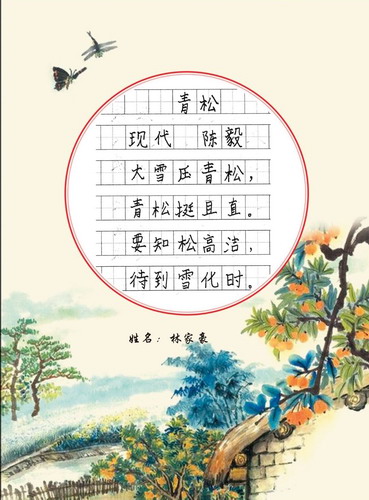 青松
现代 陈毅
大雪压青松，
青松挺且直。
要知松高洁，
待到雪化时。
姓名：林家豪